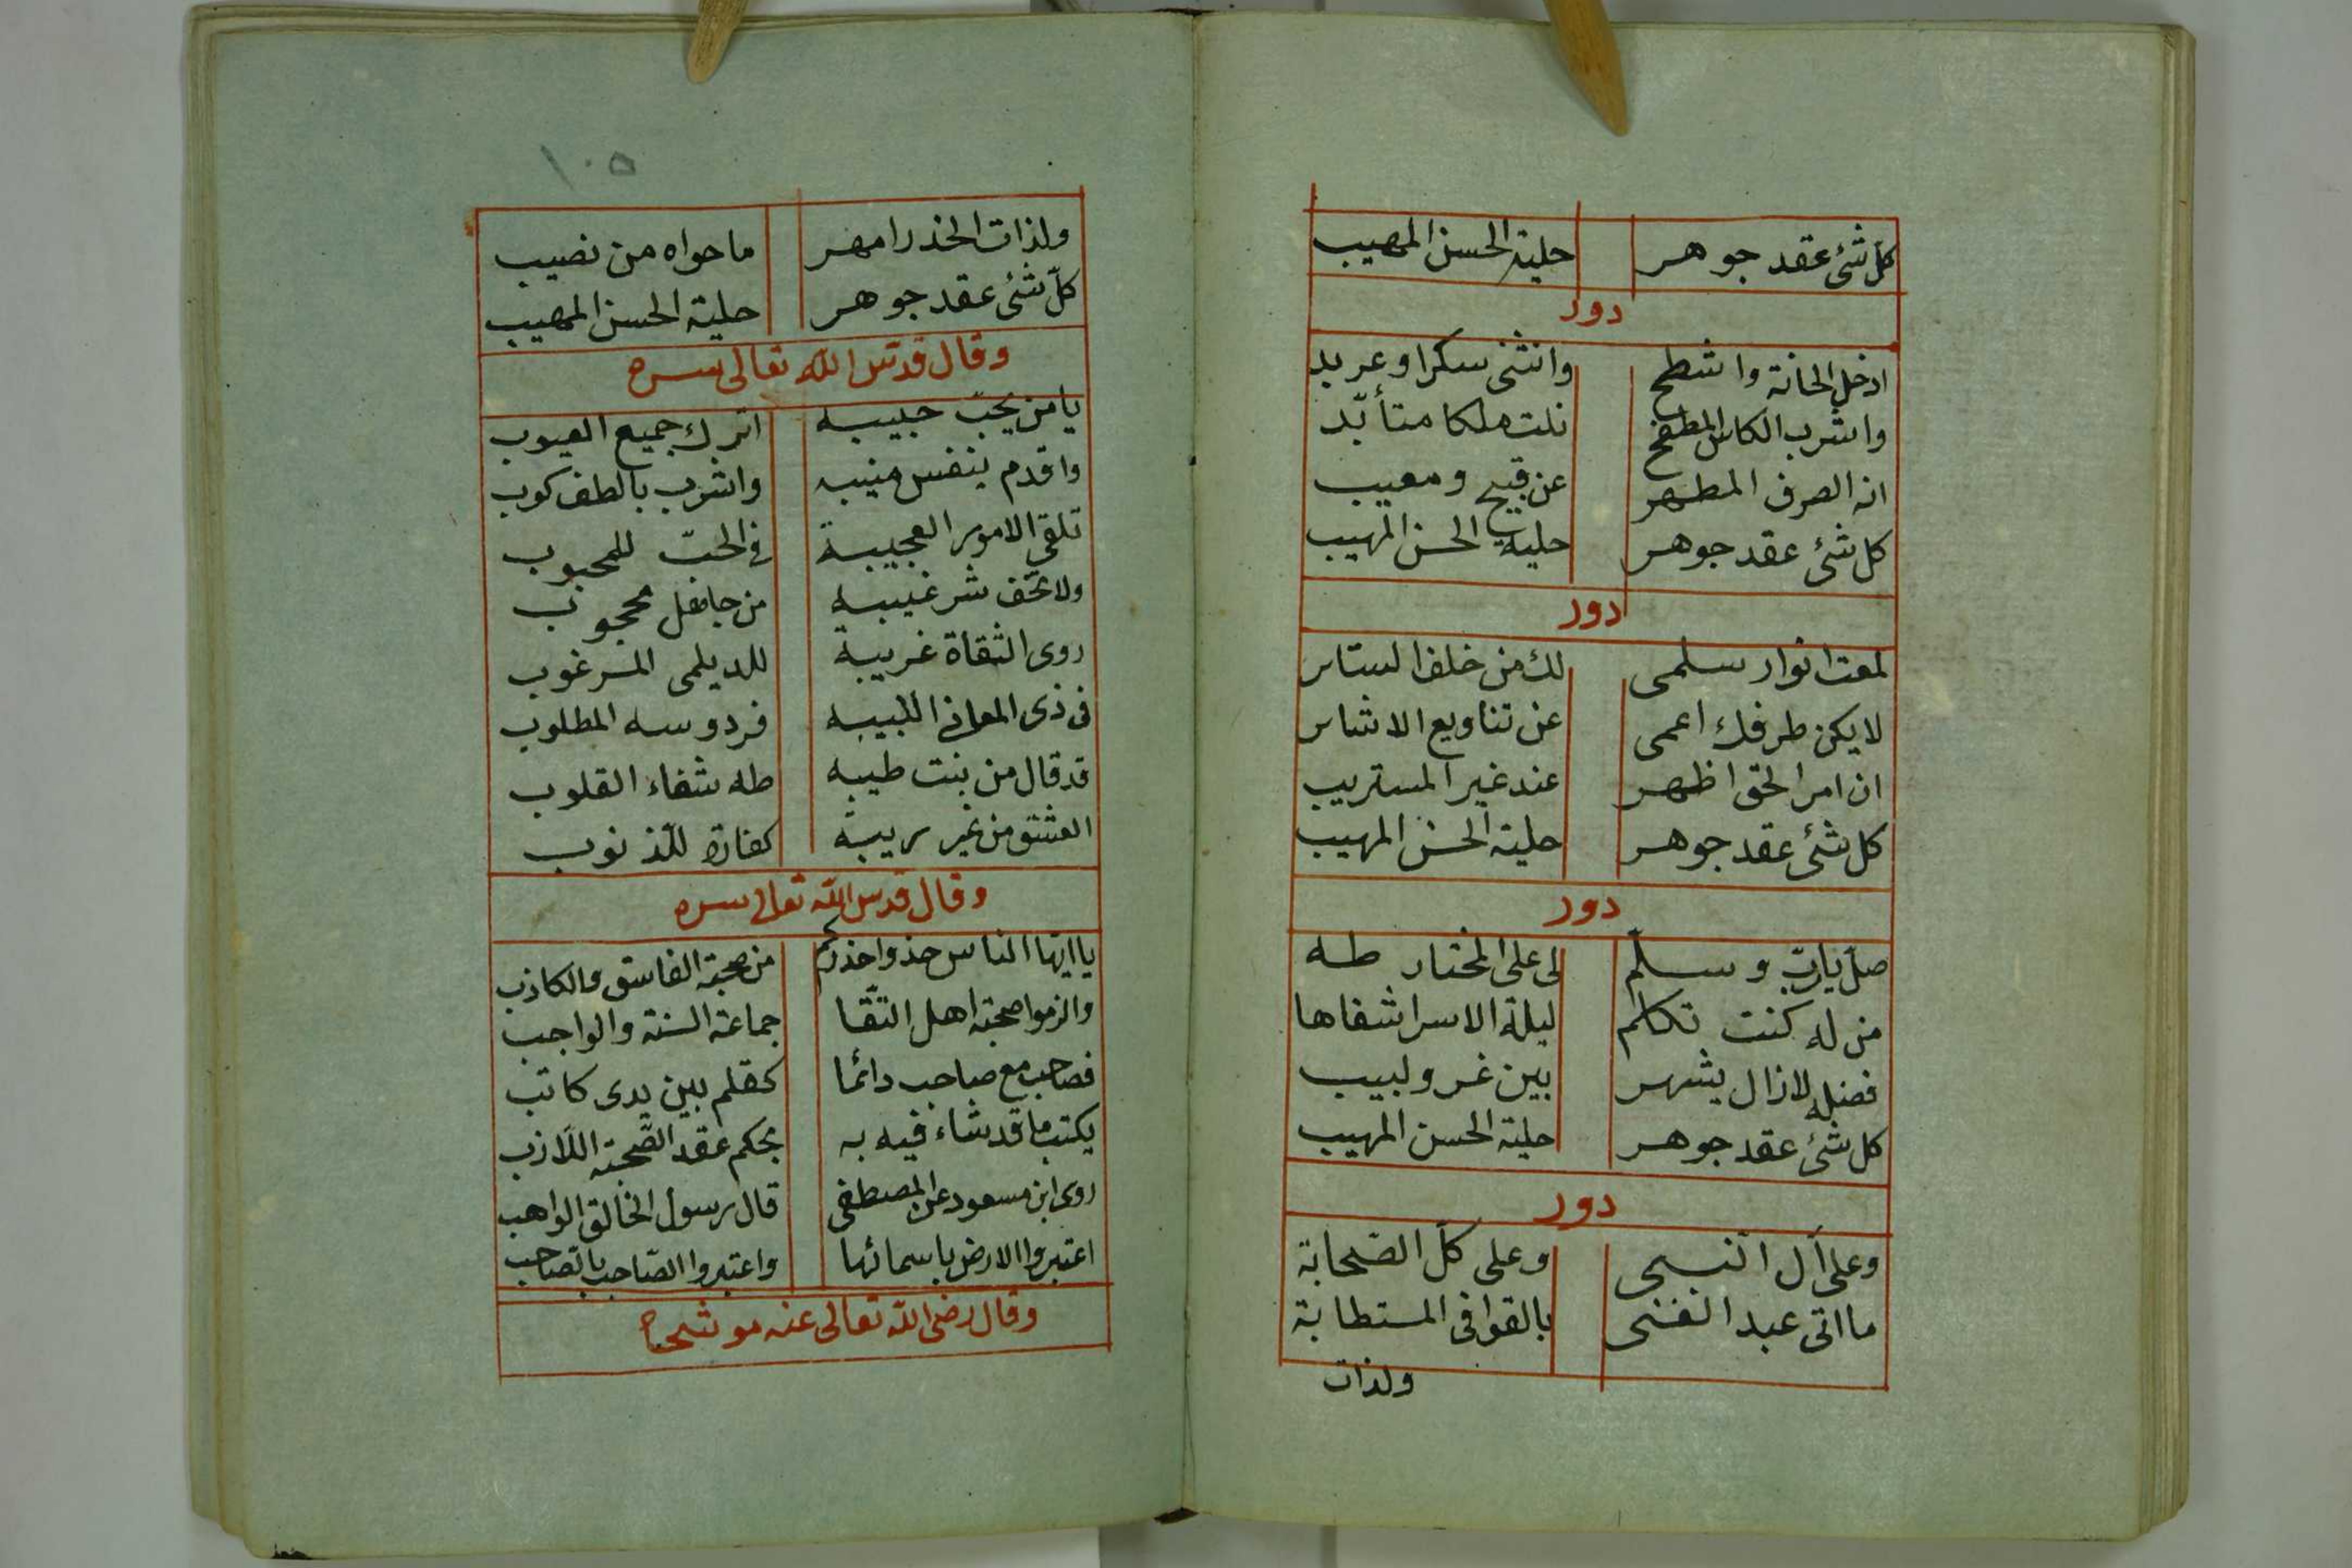 كل شئ عقد جوهر حلية الحسن المهيب
دور
ادخل الحانة واشطح وانثنى سكرا وعربد
واشرب الكاس المطفح نلت ملكا متأبّد
انه الصرف المطهر عن قبيح ومعيب
كل شئ عقد جوهر حلية الحسن المهيب
دور
لمعت انوار سلمى لك من خلف الستاير
لا يكن طرفك اعمى عن تناويع الاشاير
ان امر الحق اظهر عند غير المستريب
كل شئ عقد جوهر حلية الحسن المهيب
دور
صلّ يا ربّ وسلّم لى على المختار طه
من له كنت تكلم ليلة الاسرا شفاها
فضله لازال يشهر بين غر ولبيب
كل شئ عقد جوهر حلية الحسن المهيب
دور
وعلى آل النبى وعلى كلّ الصّحابة
ما اتى عبد الغنى بالقوافى المستطابة
ولذات
١٠٥
ولذات الخدر امهر ما حواه من نصيب
كلّ شئ عقد جوهر حلية الحسن المهيب
وقال قدّس الله تعالى سره
يا من يحبّ حبيبه اترك جميع العيوب
واقدم بنفس منيبه واشرب بالطف كوب
تلقى الامور العجيبة فى الحبّ للمحبوب
ولا تخف شر غيبه من جاهل محجوب
روى الثقاة غريبة للديلمى المرغوب
فى ذى المعانى اللبيبه فردوسه المطلوب
قد قال من بنت طيبه طه شفاء القلوب
العشق من غير ريبة كفارة للذنوب
وقال قدس الله تعالى سره
يا ايّها الناس خذوا حذركم من صحبة الفاسق والكاذب
والزموا صحبة اهل التّقا جماعة السنة والواجب
فصاحب مع صاحب دائما كقلم بين يدى كاتب
يكتب ما قد شاء فيه به بحكم عقد الصّحبة اللّازب
روى ابن مسعود عن المصطفى قال رسول الخالق الواهب
اعتبروا الارض باسمائها واعتبروا الصّاحب بالصّاحب
وقال رضى الله تعالى عنه موشحا